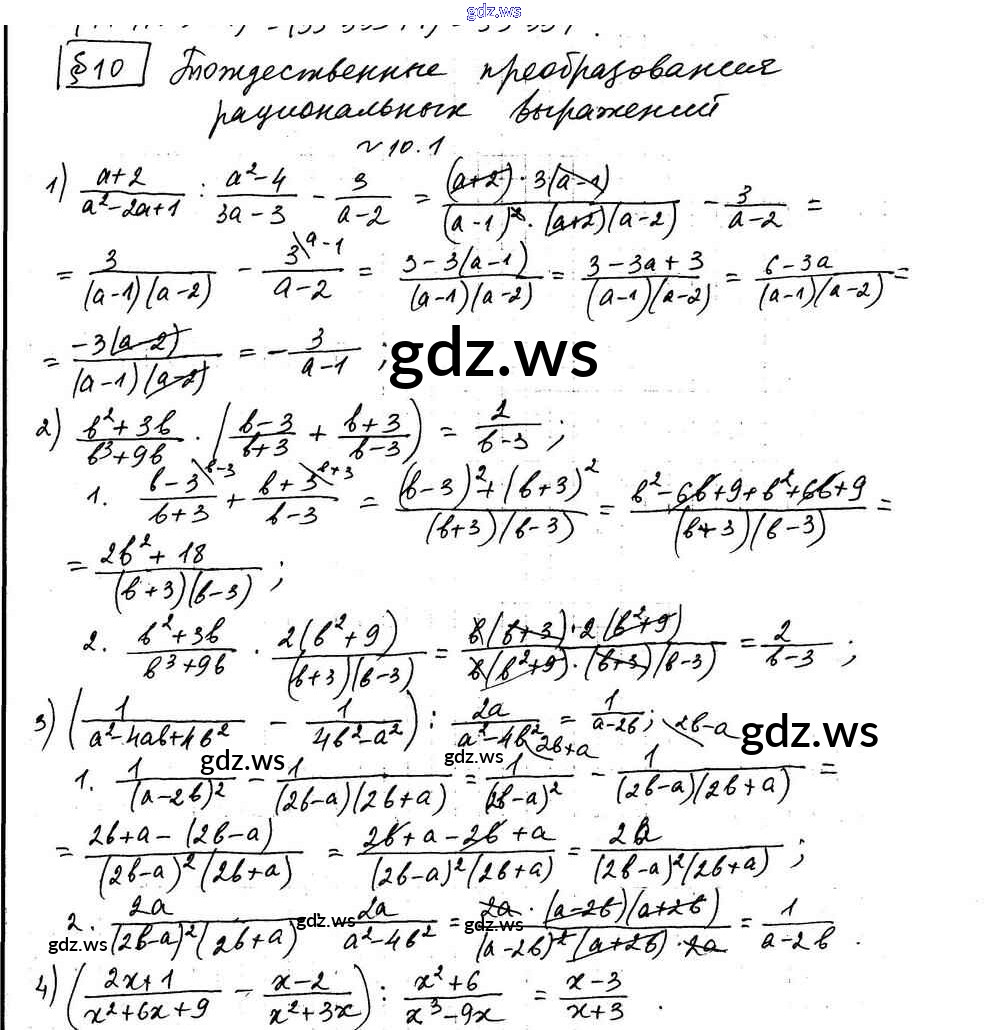 gdz.ws
§10 Тождественные преобразования
рациональных выражений
№10.1
1) (a+2)/(a²-2a+1) : (a²-4)/(3a-3) - 3/(a-2) = ((a+2)·3(a-1))/((a-1)²·(a+2)(a-2)) - 3/(a-2) =
= 3/((a-1)(a-2)) - 3\a-1/(a-2) = (3-3(a-1))/((a-1)(a-2)) = (3-3a+3)/((a-1)(a-2)) = (6-3a)/((a-1)(a-2)) =
= (-3(a-2))/((a-1)(a-2)) = -3/(a-1) ;
gdz.ws
2) (b²+3b)/(b³+9b) · ((b-3)/(b+3) + (b+3)/(b-3)) = 2/(b-3) ;
1. (b-3\b-3)/(b+3) + (b+3\b+3)/(b-3) = ((b-3)²+(b+3)²)/((b+3)(b-3)) = (b²-6b+9+b²+6b+9)/((b+3)(b-3)) =
= (2b²+18)/((b+3)(b-3)) ;
2. (b²+3b)/(b³+9b) · (2(b²+9))/((b+3)(b-3)) = (b(b+3)·2(b²+9))/(b(b²+9)·(b+3)(b-3)) = 2/(b-3) ;
3) (1/(a²-4ab+4b²) - 1/(4b²-a²)) : 2a/(a²-4b²) = 1/(a-2b) ;
gdz.ws
gdz.ws
gdz.ws
1. 1/(a-2b)² - 1/((2b-a)(2b+a)) = 1\2b+a/(2b-a)² - 1\2b-a/((2b-a)(2b+a)) =
= (2b+a-(2b-a))/((2b-a)²(2b+a)) = (2b+a-2b+a)/((2b-a)²(2b+a)) = 2a/((2b-a)²(2b+a)) ;
2. 2a/((2b-a)²(2b+a)) : 2a/(a²-4b²) = (2a·(a-2b)(a+2b))/((a-2b)²(a+2b)·2a) = 1/(a-2b) .
gdz.ws
gdz.ws
gdz.ws
4) ((2x+1)/(x²+6x+9) - (x-2)/(x²+3x)) : (x²+6)/(x³-9x) = (x-3)/(x+3) .